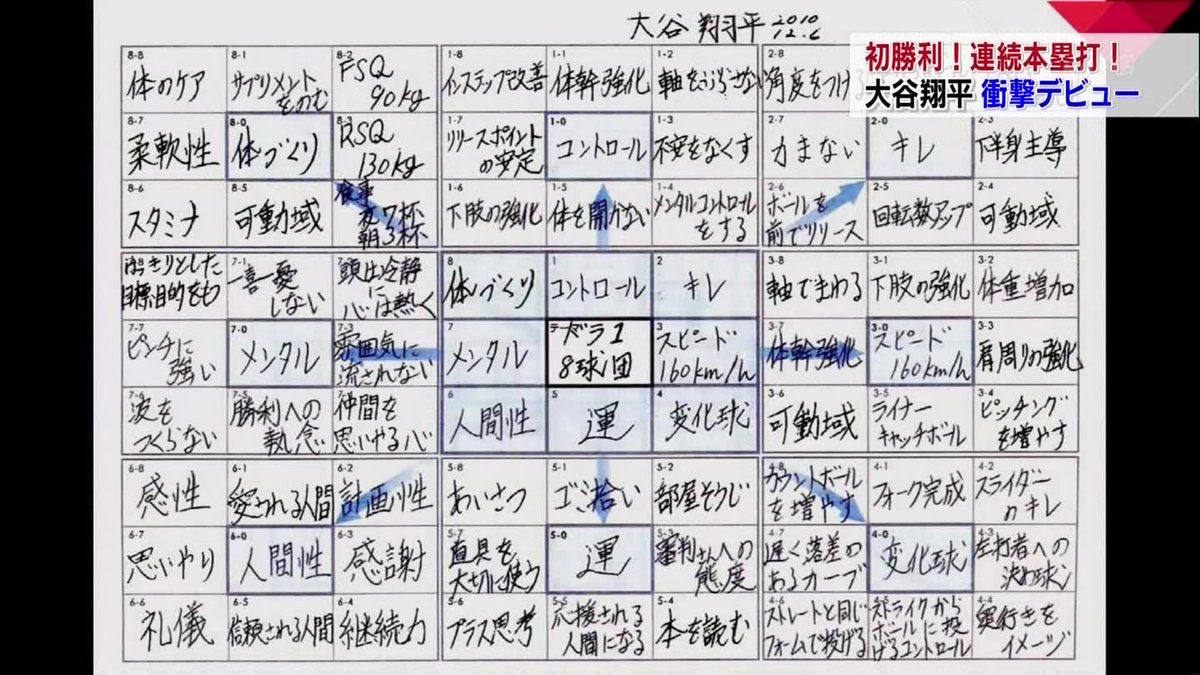 大谷 翔平 2010 12.6
初勝利！連続本塁打！
大谷翔平 衝撃デビュー
8-8 8-1 8-2 1-8 1-1 1-2 2-8
体のケア サプリメントをのむ FSQ 90kg インステップ改善 体幹強化 軸をぶらさない 角度をつける
8-7 8-0 8-3 1-7 1-0 1-3 2-7 2-0 2-3
柔軟性 体づくり RSQ 130kg リリースポイントの安定 コントロール 不安をなくす 力まない キレ 下半身主導
8-6 8-5 1-6 1-5 1-4 2-6 2-5 2-4
スタミナ 可動域 食事 夜7杯 朝3杯 下肢の強化 体を開かない メンタルコントロールをする ボールを前でリリース 回転数アップ 可動域
7-1 8 1 2 3-8 3-1 3-2
はっきりとした目標目的をもつ 一喜一憂しない 頭は冷静に心は熱く 体づくり コントロール キレ 軸でまわる 下肢の強化 体重増加
7-7 7-0 7-3 7 テーマ 3 3-7 3-0 3-3
ピンチに強い メンタル 雰囲気に流されない メンタル ドラ1 8球団 スピード 160km/h 体幹強化 スピード 160km/h 肩周りの強化
7-6 7-5 7-4 6 5 4 3-6 3-5 3-4
波をつくらない 勝利への執念 仲間を思いやる心 人間性 運 変化球 可動域 ライナーキャッチボール ピッチングを増やす
6-8 6-1 6-2 5-8 5-1 5-2 4-8 4-1 4-2
感性 愛される人間 計画性 あいさつ ゴミ拾い 部屋そうじ カウントボールを増やす フォーク完成 スライダーのキレ
6-7 6-0 6-3 5-7 5-0 5-3 4-7 4-0 4-3
思いやり 人間性 感謝 道具を大切に使う 運 審判さんへの態度 遅く落差のあるカーブ 変化球 左打者への決め球
6-6 6-5 6-4 5-6 5-5 5-4 4-6 4-5 4-4
礼儀 信頼される人間 継続力 プラス思考 応援される人間になる 本を読む ストレートと同じフォームで投げる ストライクからボールに投げるコントロール 奥行きをイメージ